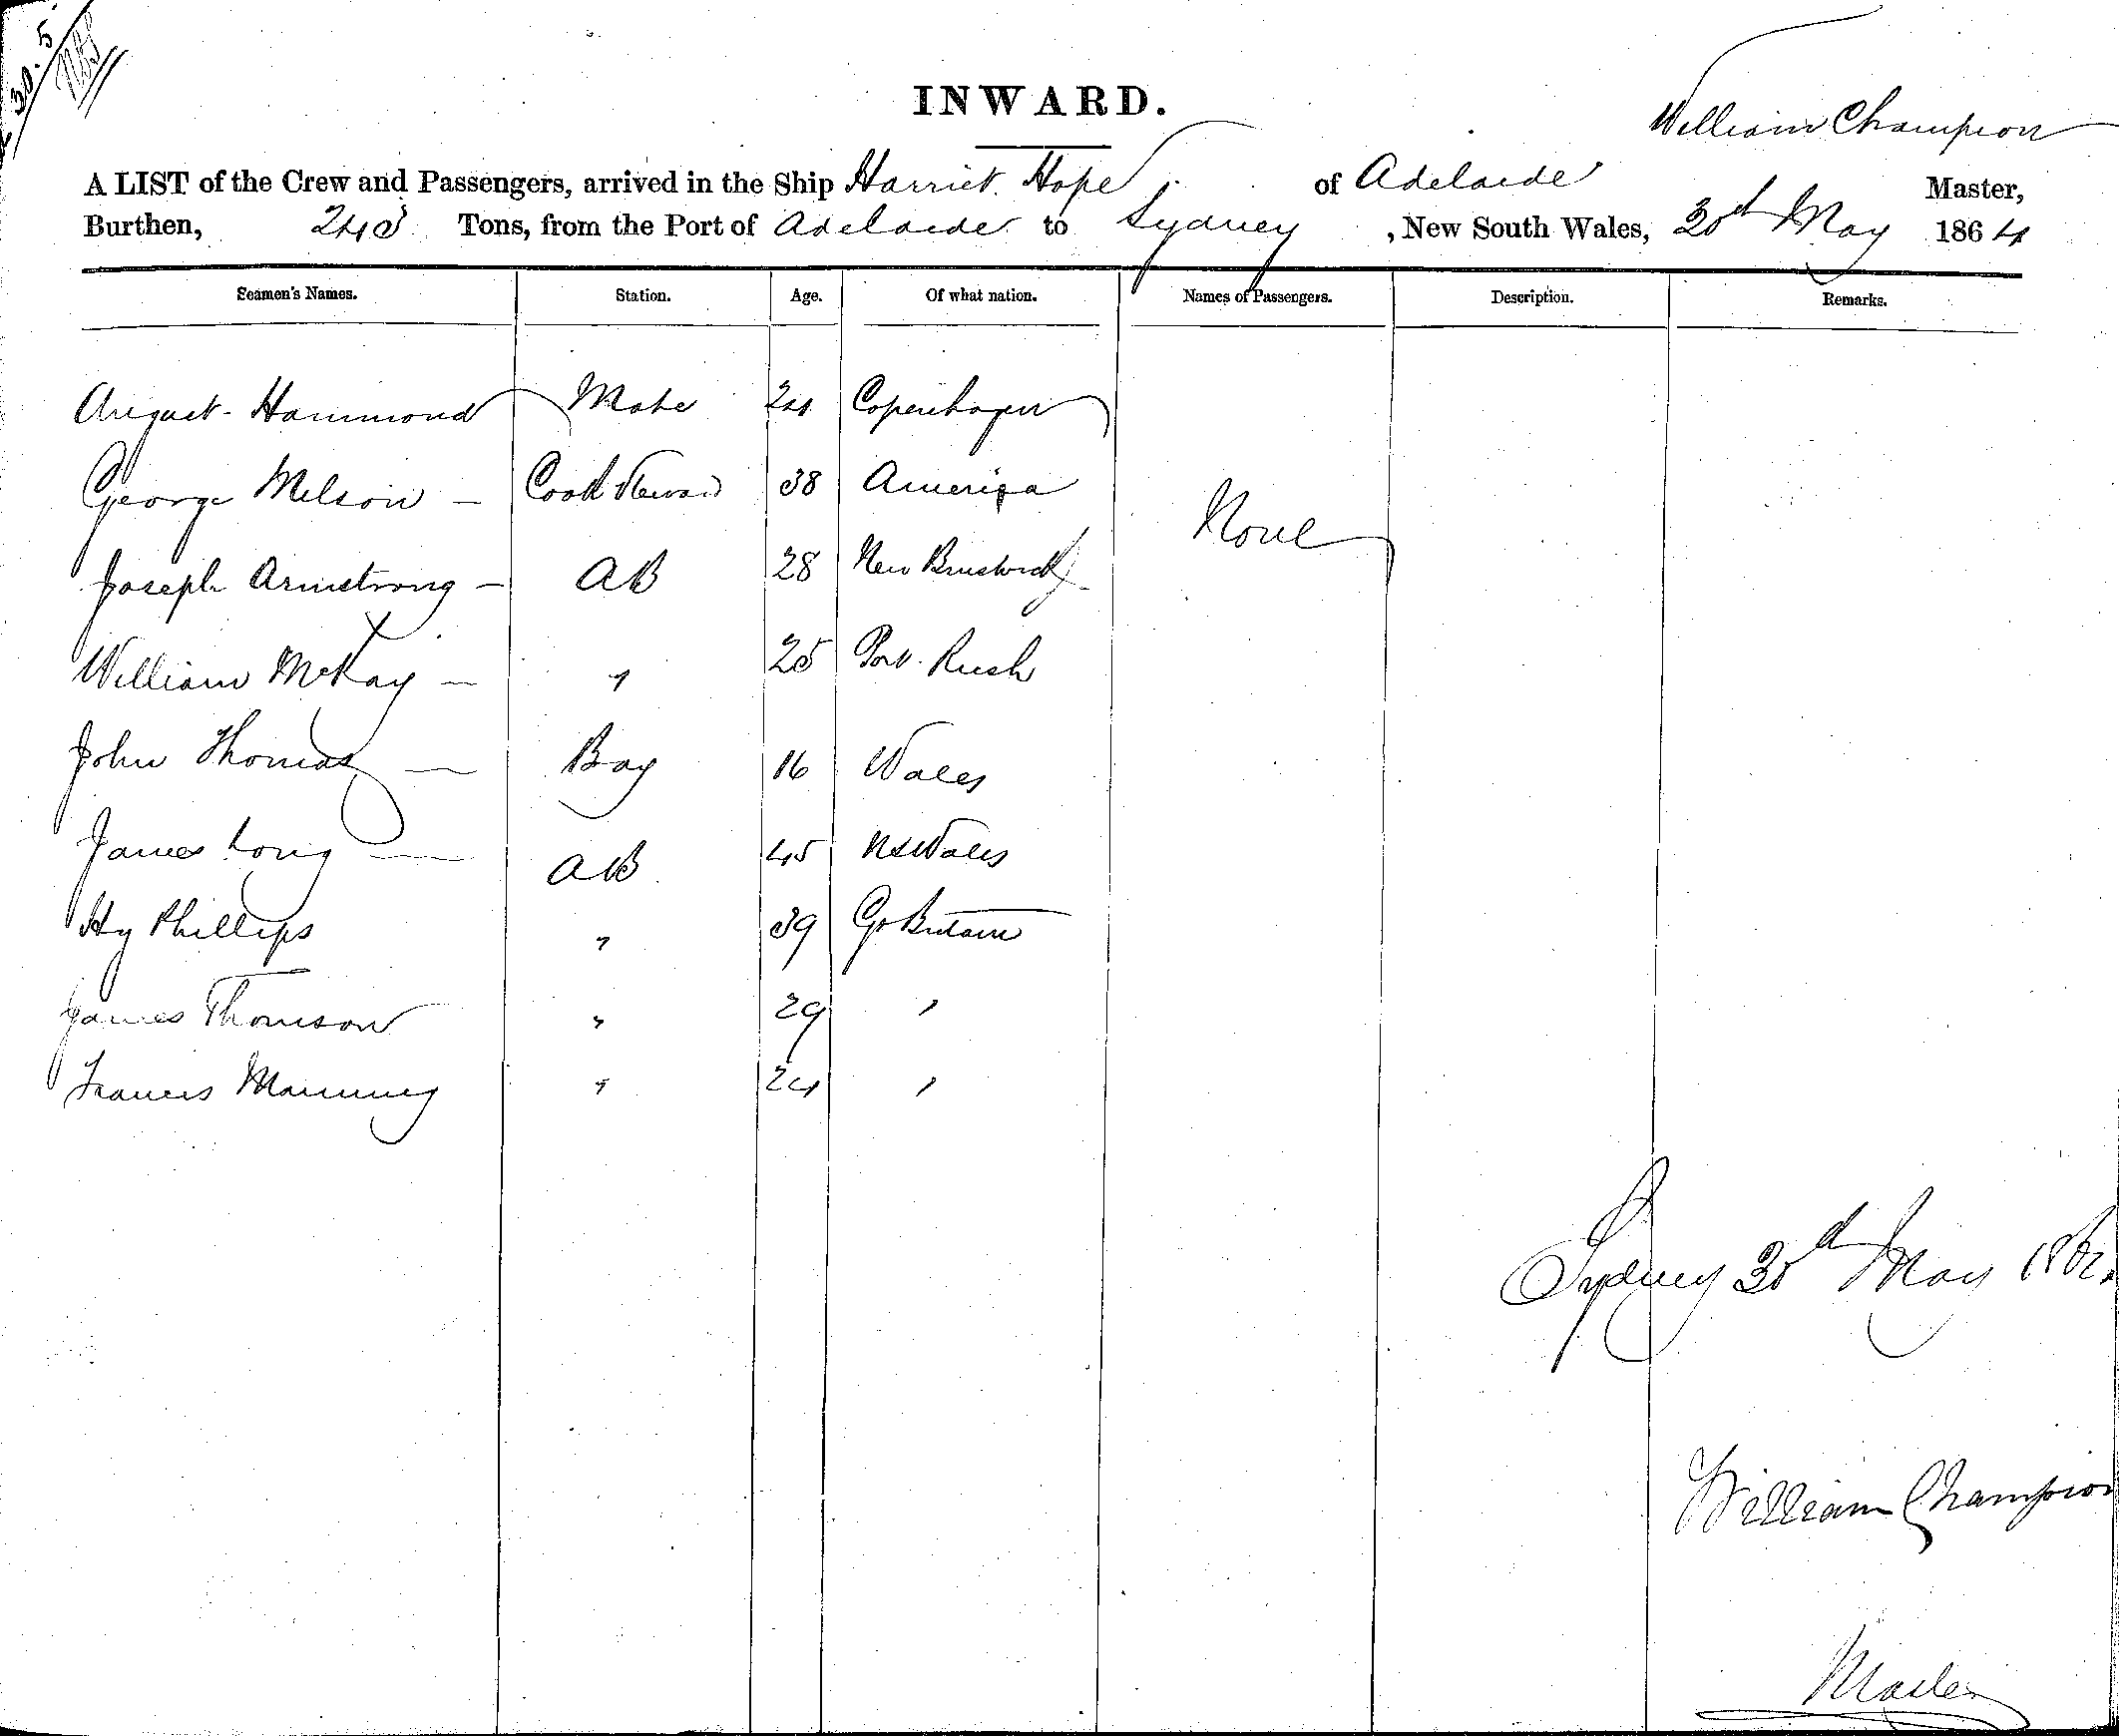 30.5
INWARD.
William Champion
A LIST of the Crew and Passengers, arrived in the Ship Harriet Hope of Adelaide Master,
Burthen, 243 Tons, from the Port of Adelaide to Sydney, New South Wales, 30th May 1864
Seamen's Names. Station. Age. Of what nation. Names of Passengers. Description. Remarks.
August Hammond Mate 24 Copenhagen
George Melson — Cook Steward 38 America
None
Joseph Armstrong — AB 28 New Brunswick
William McKay — " 25 Port Rush
John Thomas — Boy 16 Wales
James Long — AB 45 NSWales
Hy Phillips " 39 Gt Britain
James Thomson " 29 "
Francis Manning " 24 "
Sydney 30th May 186
William Champion
Master